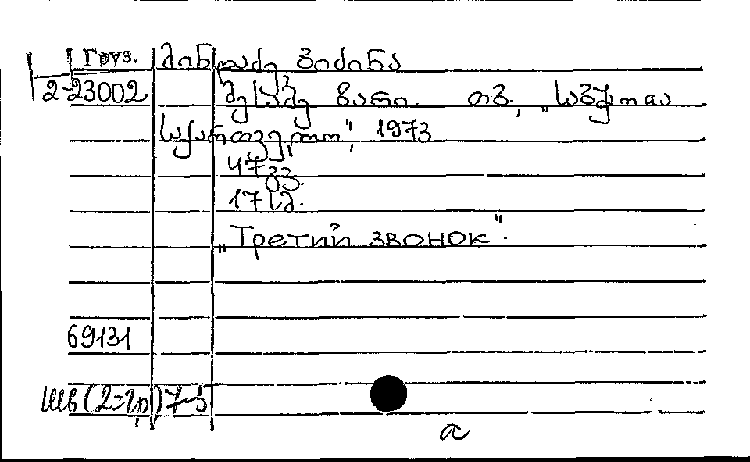 Груз. მინდაძე გიძინა
2-23002 მესამე ზარი. თბ., „საბჭოთა
საქართველო", 1973
47 გვ.
17 სმ.
„Третий звонок".
69131
Шв(2=Гр)7-5
а